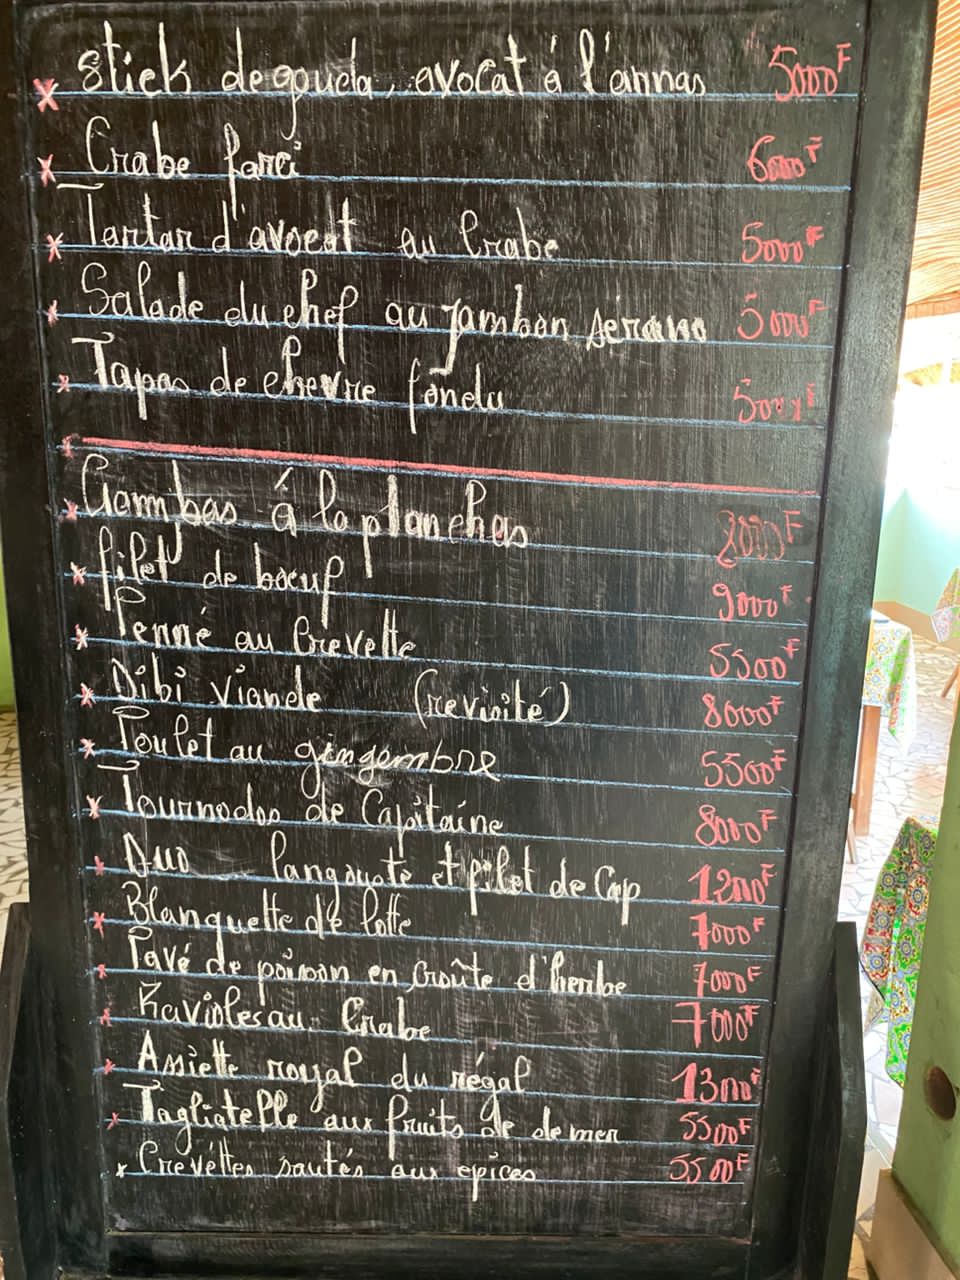 stick de gouda, avocat á l'annas 5000F
Crabe farci 6000F
Tartar d'avocat au Crabe 5000F
Salade du chef au jambon serano 5000F
Tapas de chevre fondu 5000F
Gambas á la planchas 8000F
filet de boeuf 9000F
Penné au Crevette 5500F
Dibi viande (revisité) 8000F
Poulet au gingembre 5500F
Tournodos de Capitaine 8000F
Duo langouste et filet de Cap 12000F
Blanquette de lotte 7000F
Pavé de poisson en croûte d'herbe 7000F
Ravioles au Crabe 7000F
Assiette royal du régal 13000F
Tagliatelle aux fruits de de mer 5500F
Crevéttes sautés aux epices 5500F